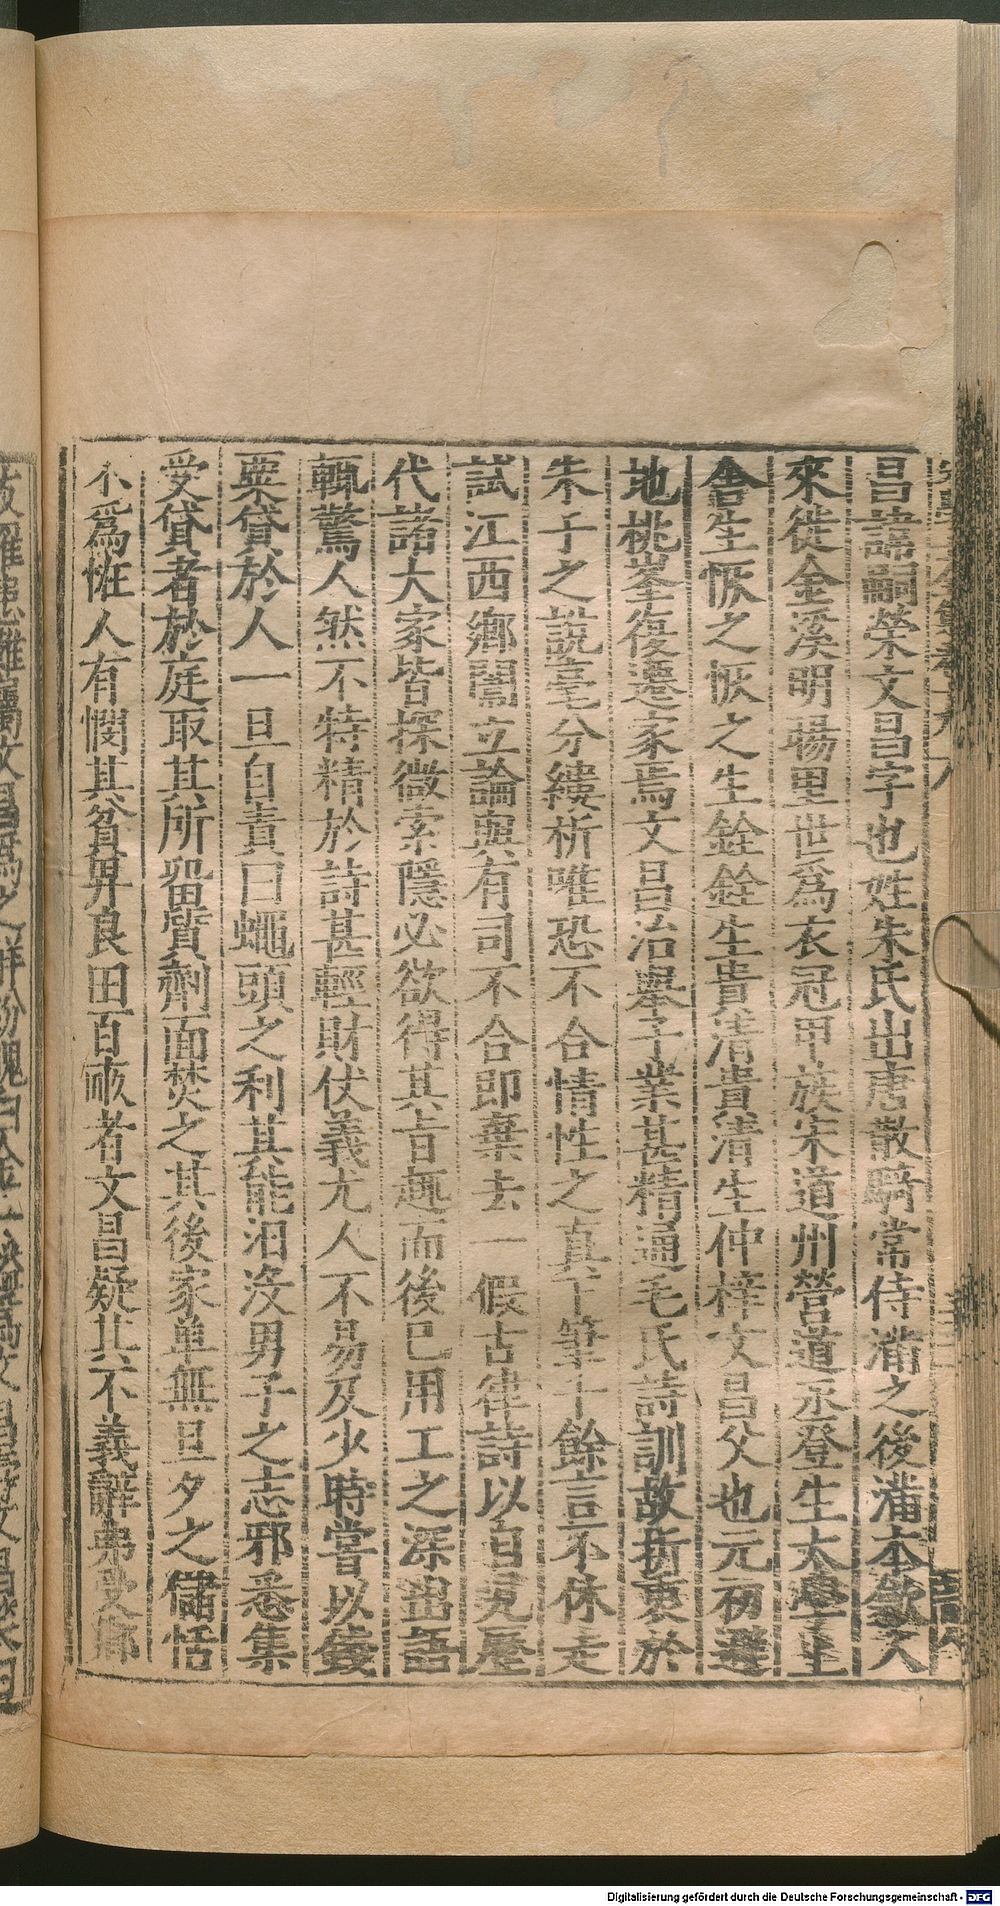 昌諱嗣榮文昌字也姓朱氏出唐散騎常侍滿之後滿本歙人
來徙金溪明暘里世爲衣冠甲族宋道州營道丞登生太
舍生恢之恢之生銓銓生貴清貴清生仲梓文昌父也元初遷
地桃峯復遷家焉文昌治舉子業甚精通毛氏詩訓故折衷於
朱子之說毫分縷析唯恐不合情性之真下筆千餘言不休走
試江西鄉闈立論與有司不合即棄去一假古律詩以自見歷
代諸大家皆探微索隱必欲得其旨趣而後已用工之深出語
輒驚人然不特精於詩甚輕財伏義尤人不易及少時嘗以錢
粟貸於人一旦自責曰蠅頭之利其能汨沒男子之志邪悉集
受貸者於庭取其所留質劑面焚之其後家單無旦夕之儲恬
不爲恠人有閔其貧畀良田百畝者文昌疑其不義辭弗受鄉
Digitalisierung gefördert durch die Deutsche Forschungsgemeinschaft - DFG